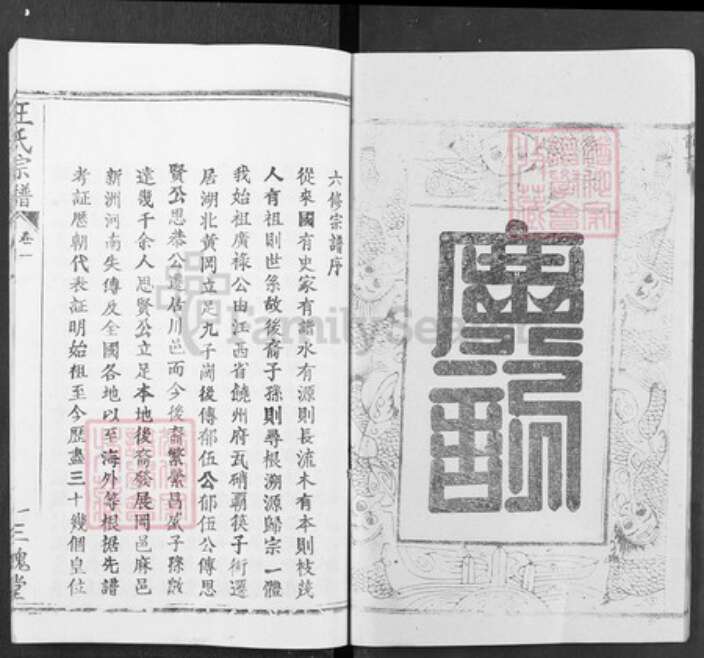 六修宗譜序
從來國有史家有譜水有源則長流木有本則枝茂
人有祖則世系故後裔子孫則尋根溯源歸宗一體
我始祖廣祿公由江西省饒州府瓦硝霸筷子街遷
居湖北黄岡立足九子崗後傳郁伍公郁伍公傳思
賢公思恭公遷居川邑而今後裔繁榮昌盛子孫
達幾千余人思賢公立足本地後裔發展岡邑麻邑
新洲河南失傳及全國各地以至海外等根据先譜
考証歷朝代表証明始祖至今歷盡三十幾個皇位
汪氏宗譜
卷一
三槐堂
FamilySearch